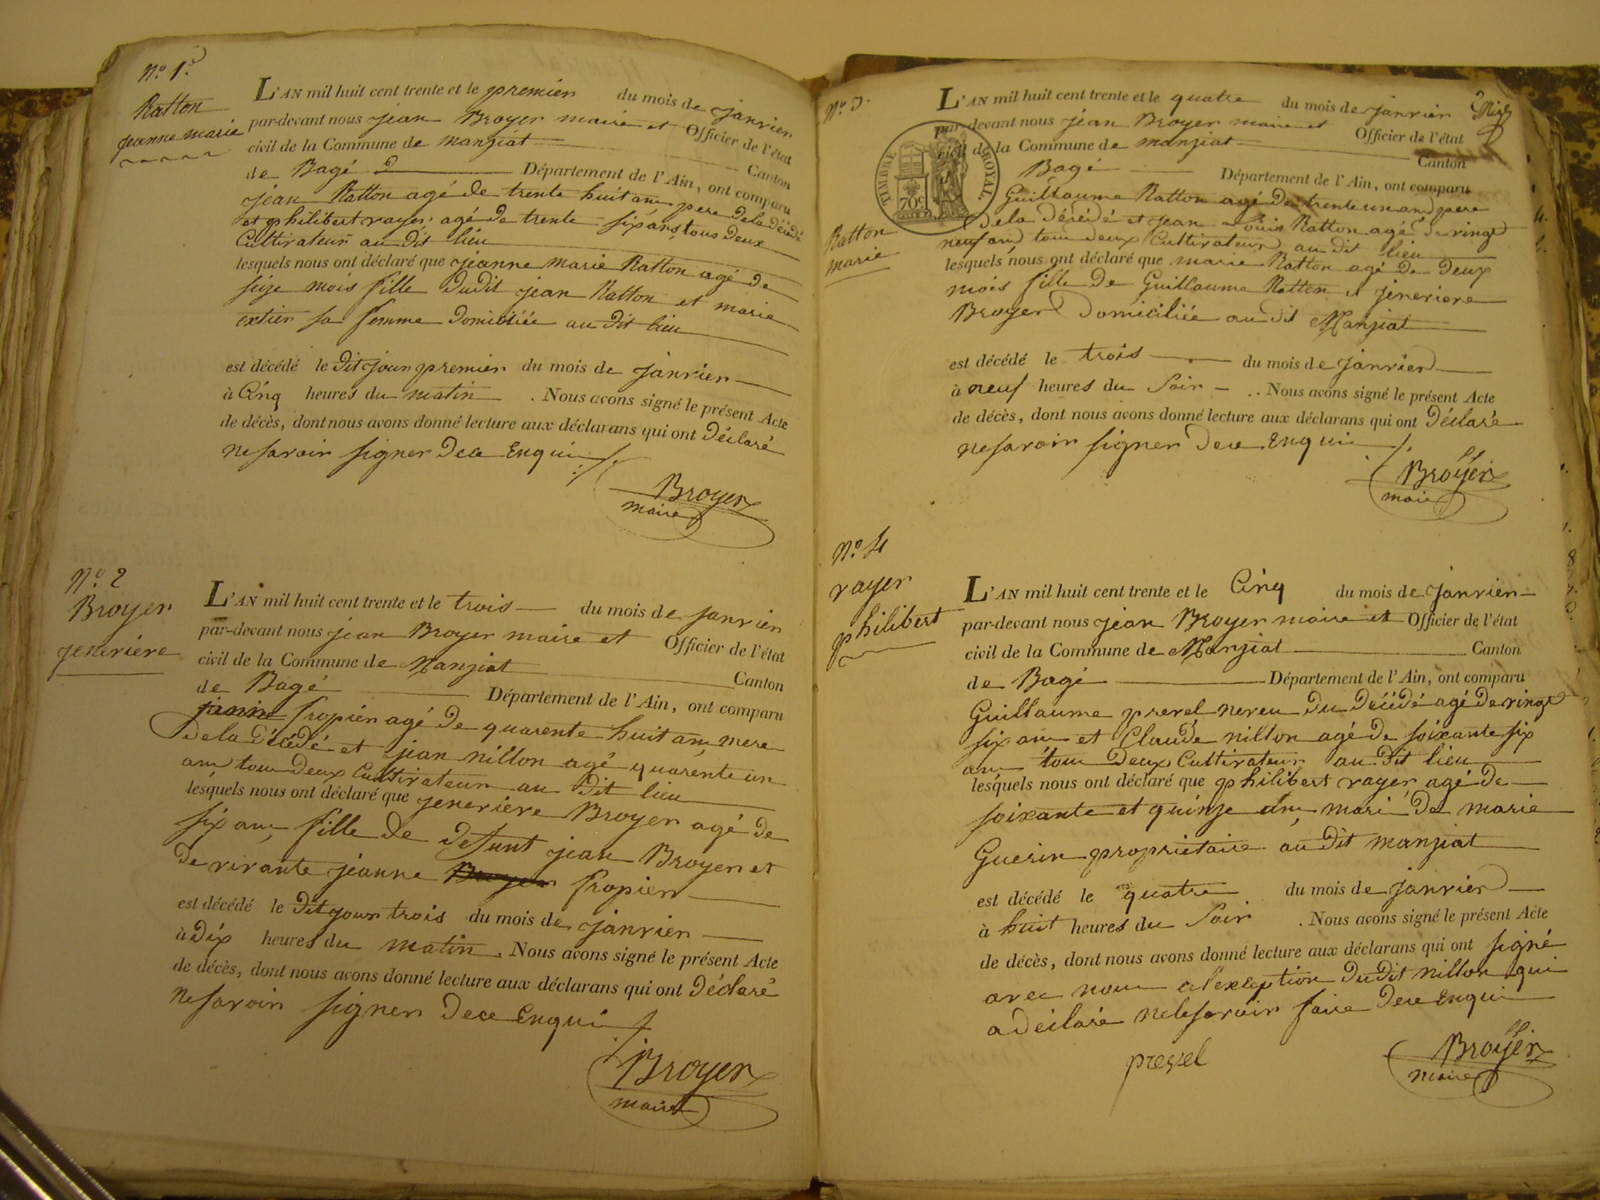 N.o 1.
Ratton
jeanne marie
L'AN mil huit cent trente et le premier du mois de janvier
par-devant nous jean Broyer maire et Officier de l'état
civil de la Commune de manziat Canton
de Bagé Département de l'Ain, ont comparu
jean Ratton agé de trente huit ans pere de la décédé
et philibert rayer agé de trente six ans, tous deux
Cultivateurs au dit lieu
lesquels nous ont déclaré que jeanne marie Ratton agé de
seize mois fille dudit jean Ratton et marie
sa femme domiciliée au dit lieu
est décédé le dit jour premier du mois de janvier
à Cinq heures du matin . Nous avons signé le présent Acte
de décès, dont nous avons donné lecture aux déclarans qui ont Déclaré
ne savoir signer dece Enquis
Broyer
maire
N.o 2
Broyer
jenevieve
L'AN mil huit cent trente et le trois du mois de janvier
par-devant nous jean Broyer maire et Officier de l'état
civil de la Commune de Manziat Canton
de Bagé Département de l'Ain, ont comparu
fropier agé de quarente huit ans, mere
de la décédé et jean nillon agé quarente un
ans tous deux Cultivateurs au dit lieu
lesquels nous ont déclaré que jenevieve Broyer agé de
six ans, fille de defunt jean Broyer et
de vivante jeanne fropier
est décédé le dit jour trois du mois de janvier
à dix heures du matin . Nous avons signé le présent Acte
de décès, dont nous avons donné lecture aux déclarans qui ont déclaré
ne savoir signer dece Enquis
Broyer
maire
N.o 3.
Ratton
marie
TIMBRE ROYAL
70c
L'AN mil huit cent trente et le quatre du mois de janvier
par-devant nous jean Broyer maire et Officier de l'état
civil de la Commune de manziat Canton
Bagé Département de l'Ain, ont comparu
Guillaume Ratton agé de trente un ans pere
de la décédé et jean Louis Ratton agé de vingt
neuf ans tous deux Cultivateurs au dit lieu
lesquels nous ont déclaré que marie Ratton agé de deux
mois fille de Guillaume Ratton et jenevieve
Broyer domiciliée au dit Manziat
est décédé le trois du mois de janvier
à neuf heures du soir . Nous avons signé le présent Acte
de décès, dont nous avons donné lecture aux déclarans qui ont déclaré
ne savoir signer dece Enquis
Broyer
maire
N.o 4
rayer
philibert
L'AN mil huit cent trente et le Cinq du mois de janvier
par-devant nous jean Broyer maire et Officier de l'état
civil de la Commune de Manziat Canton
de Bagé Département de l'Ain, ont comparu
Guillaume prevel neveu du décédé agé de vingt
six ans et Claude nillon agé de soixante six
ans tous deux Cultivateurs au dit lieu
lesquels nous ont déclaré que philibert rayer agé de
soixante et quinze ans, mari de marie
Guerin propriétaire au dit manziat
est décédé le quatre du mois de janvier
à huit heures du soir . Nous avons signé le présent Acte
de décès, dont nous avons donné lecture aux déclarans qui ont signé
avec nous a l'exception dudit nillon qui
a déclaré ne le savoir faire dece Enquis
prevel
Broyer
maire